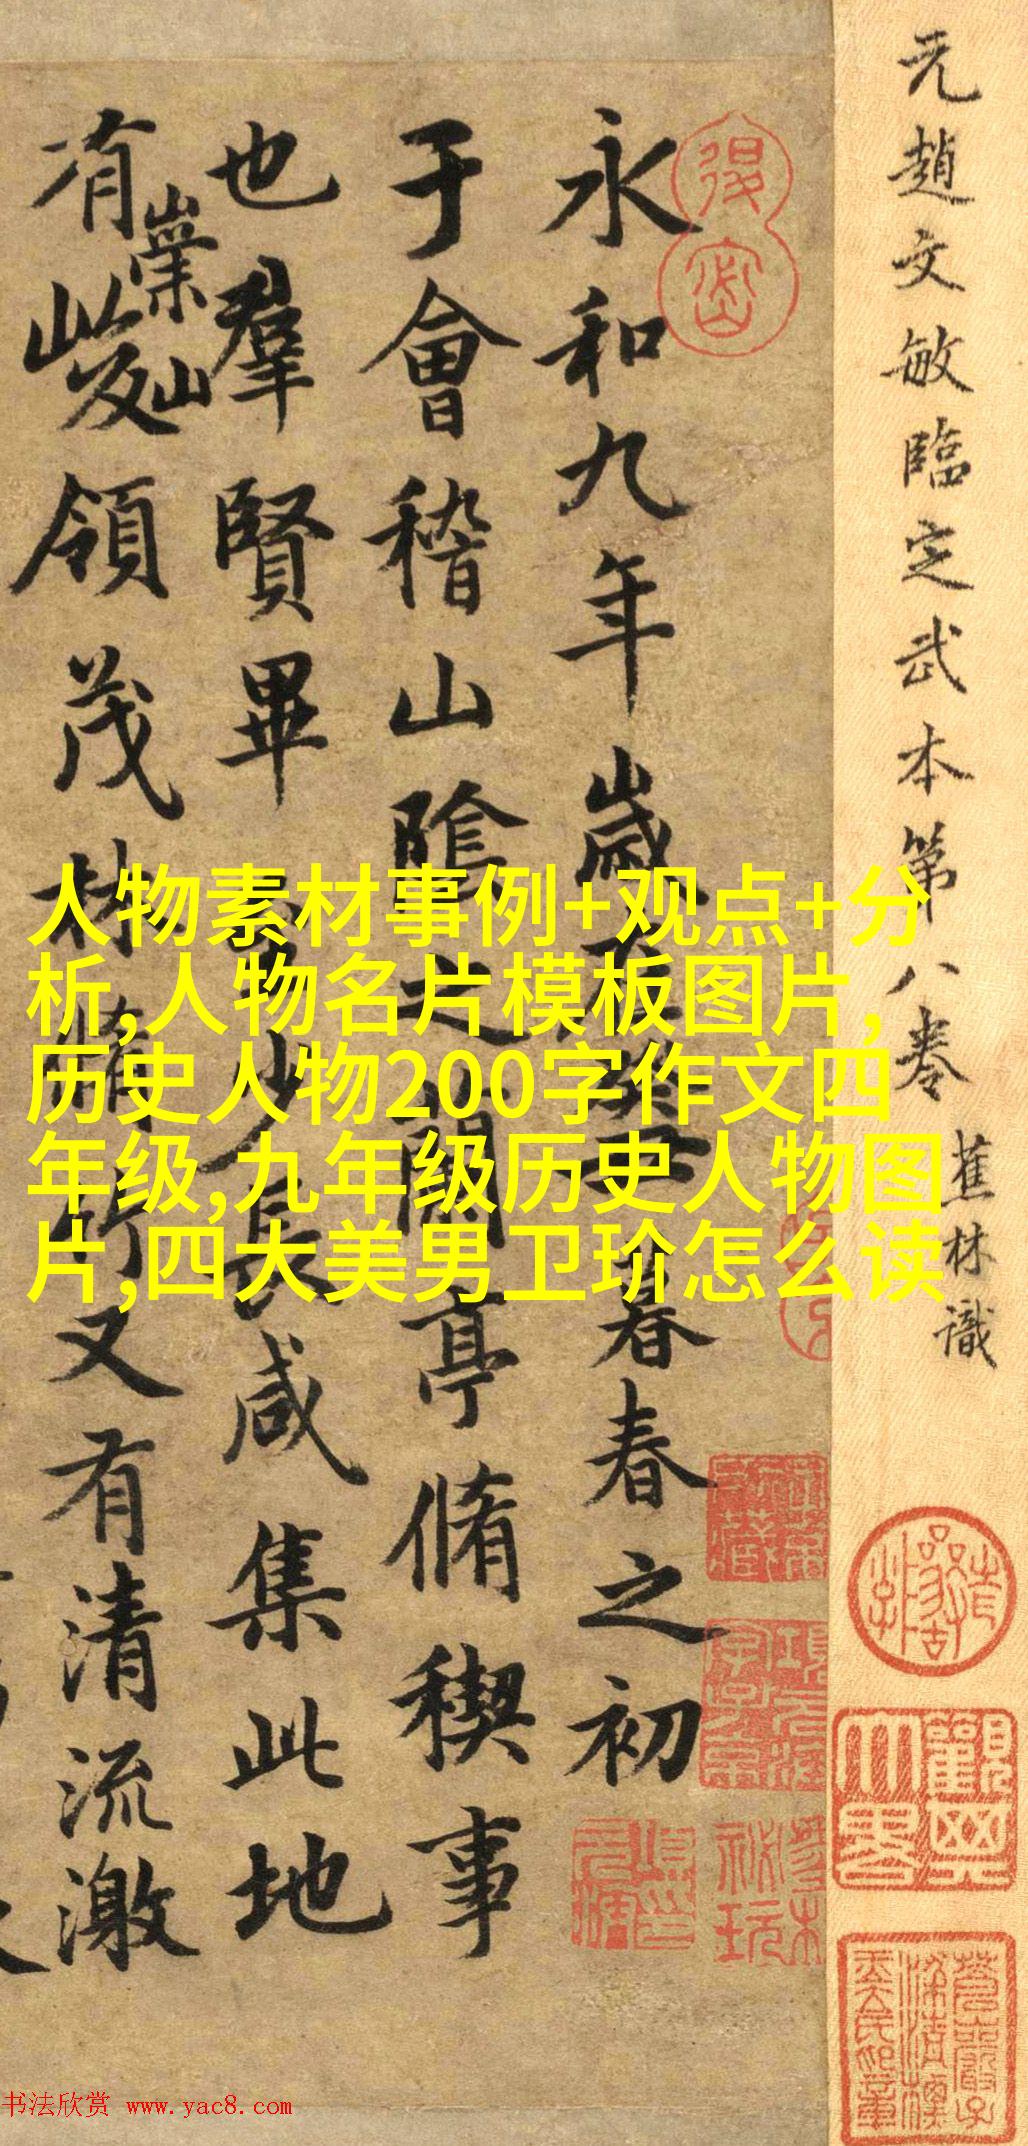 元趙文敏臨定武本第八卷
蕉林識
永和九年歲在癸丑暮春之初
于會稽山陰之蘭亭脩稧事
也羣賢畢至少長咸集此地
有崇山
峻領茂林脩竹又有清流激
人物素材事例+观点+分
析,人物名片模板图片,
历史人物200字作文四
年级,九年级历史人物图
片,四大美男卫玠怎么读
書法欣赏 www.yac8.com